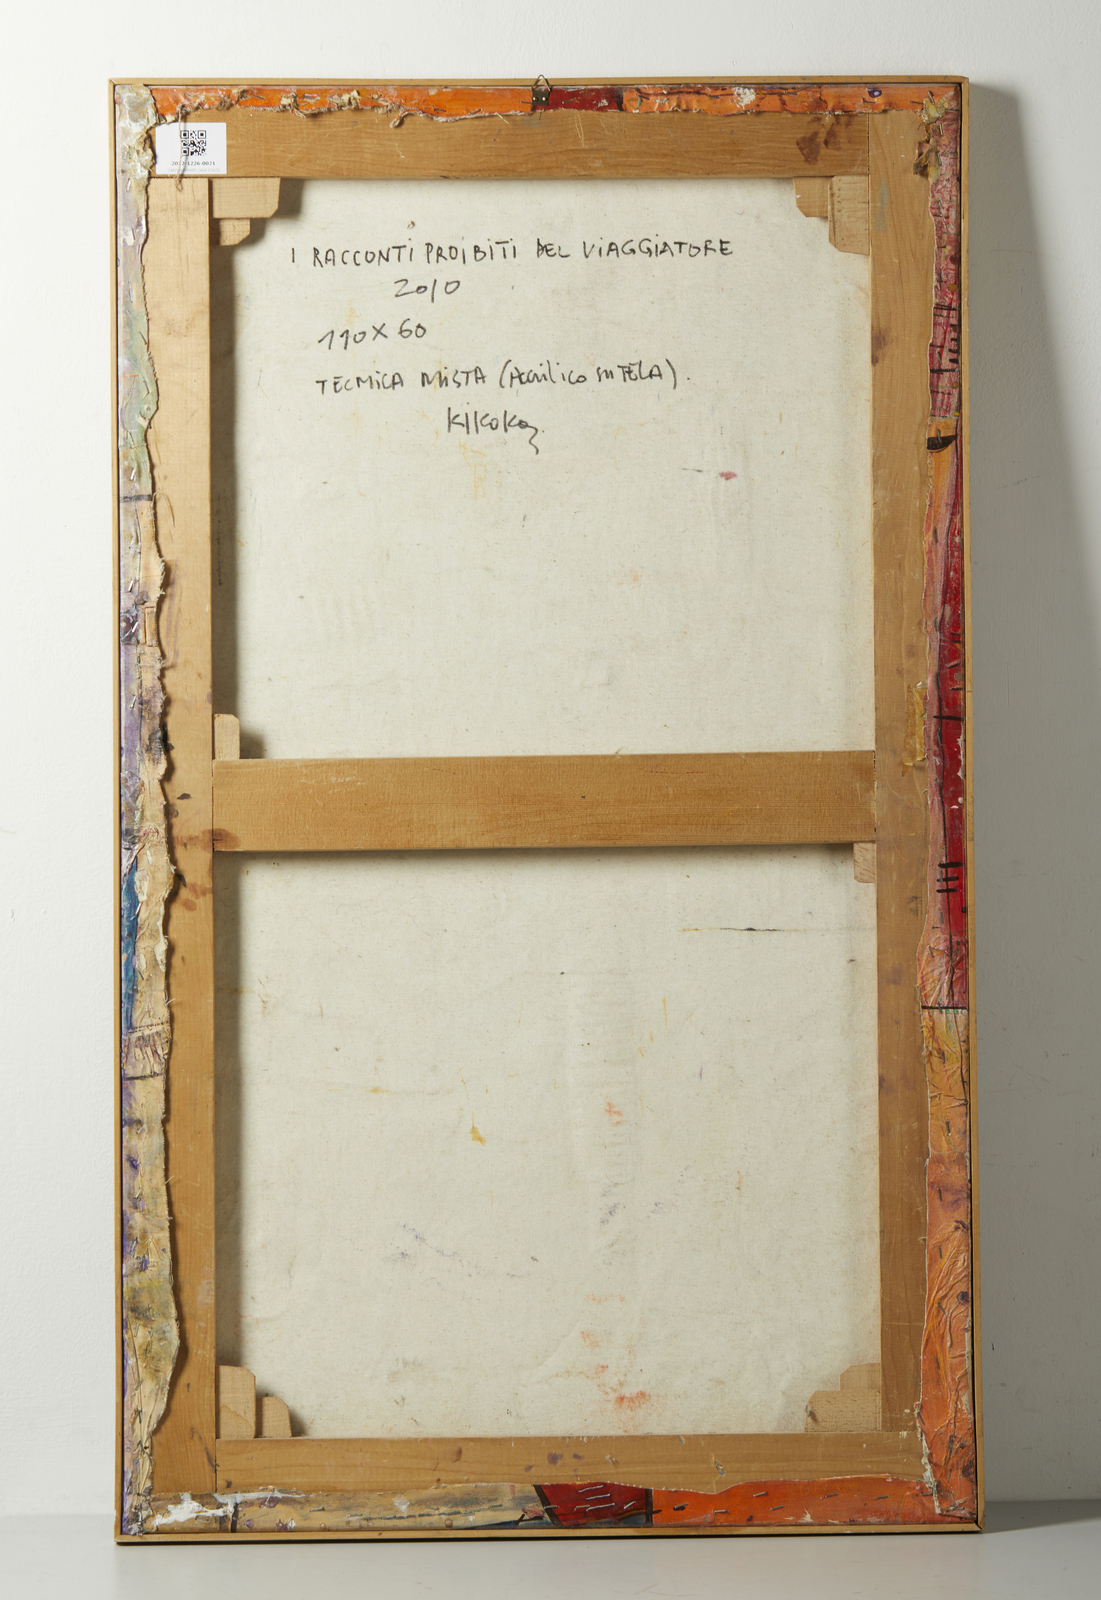 2022-1226-0021
I RACCONTI PROiBiTi DEL ViAGGiATORE
2010
110X60
TECNiCA MISTA (Acrilico su TELA).
KiKoKoz